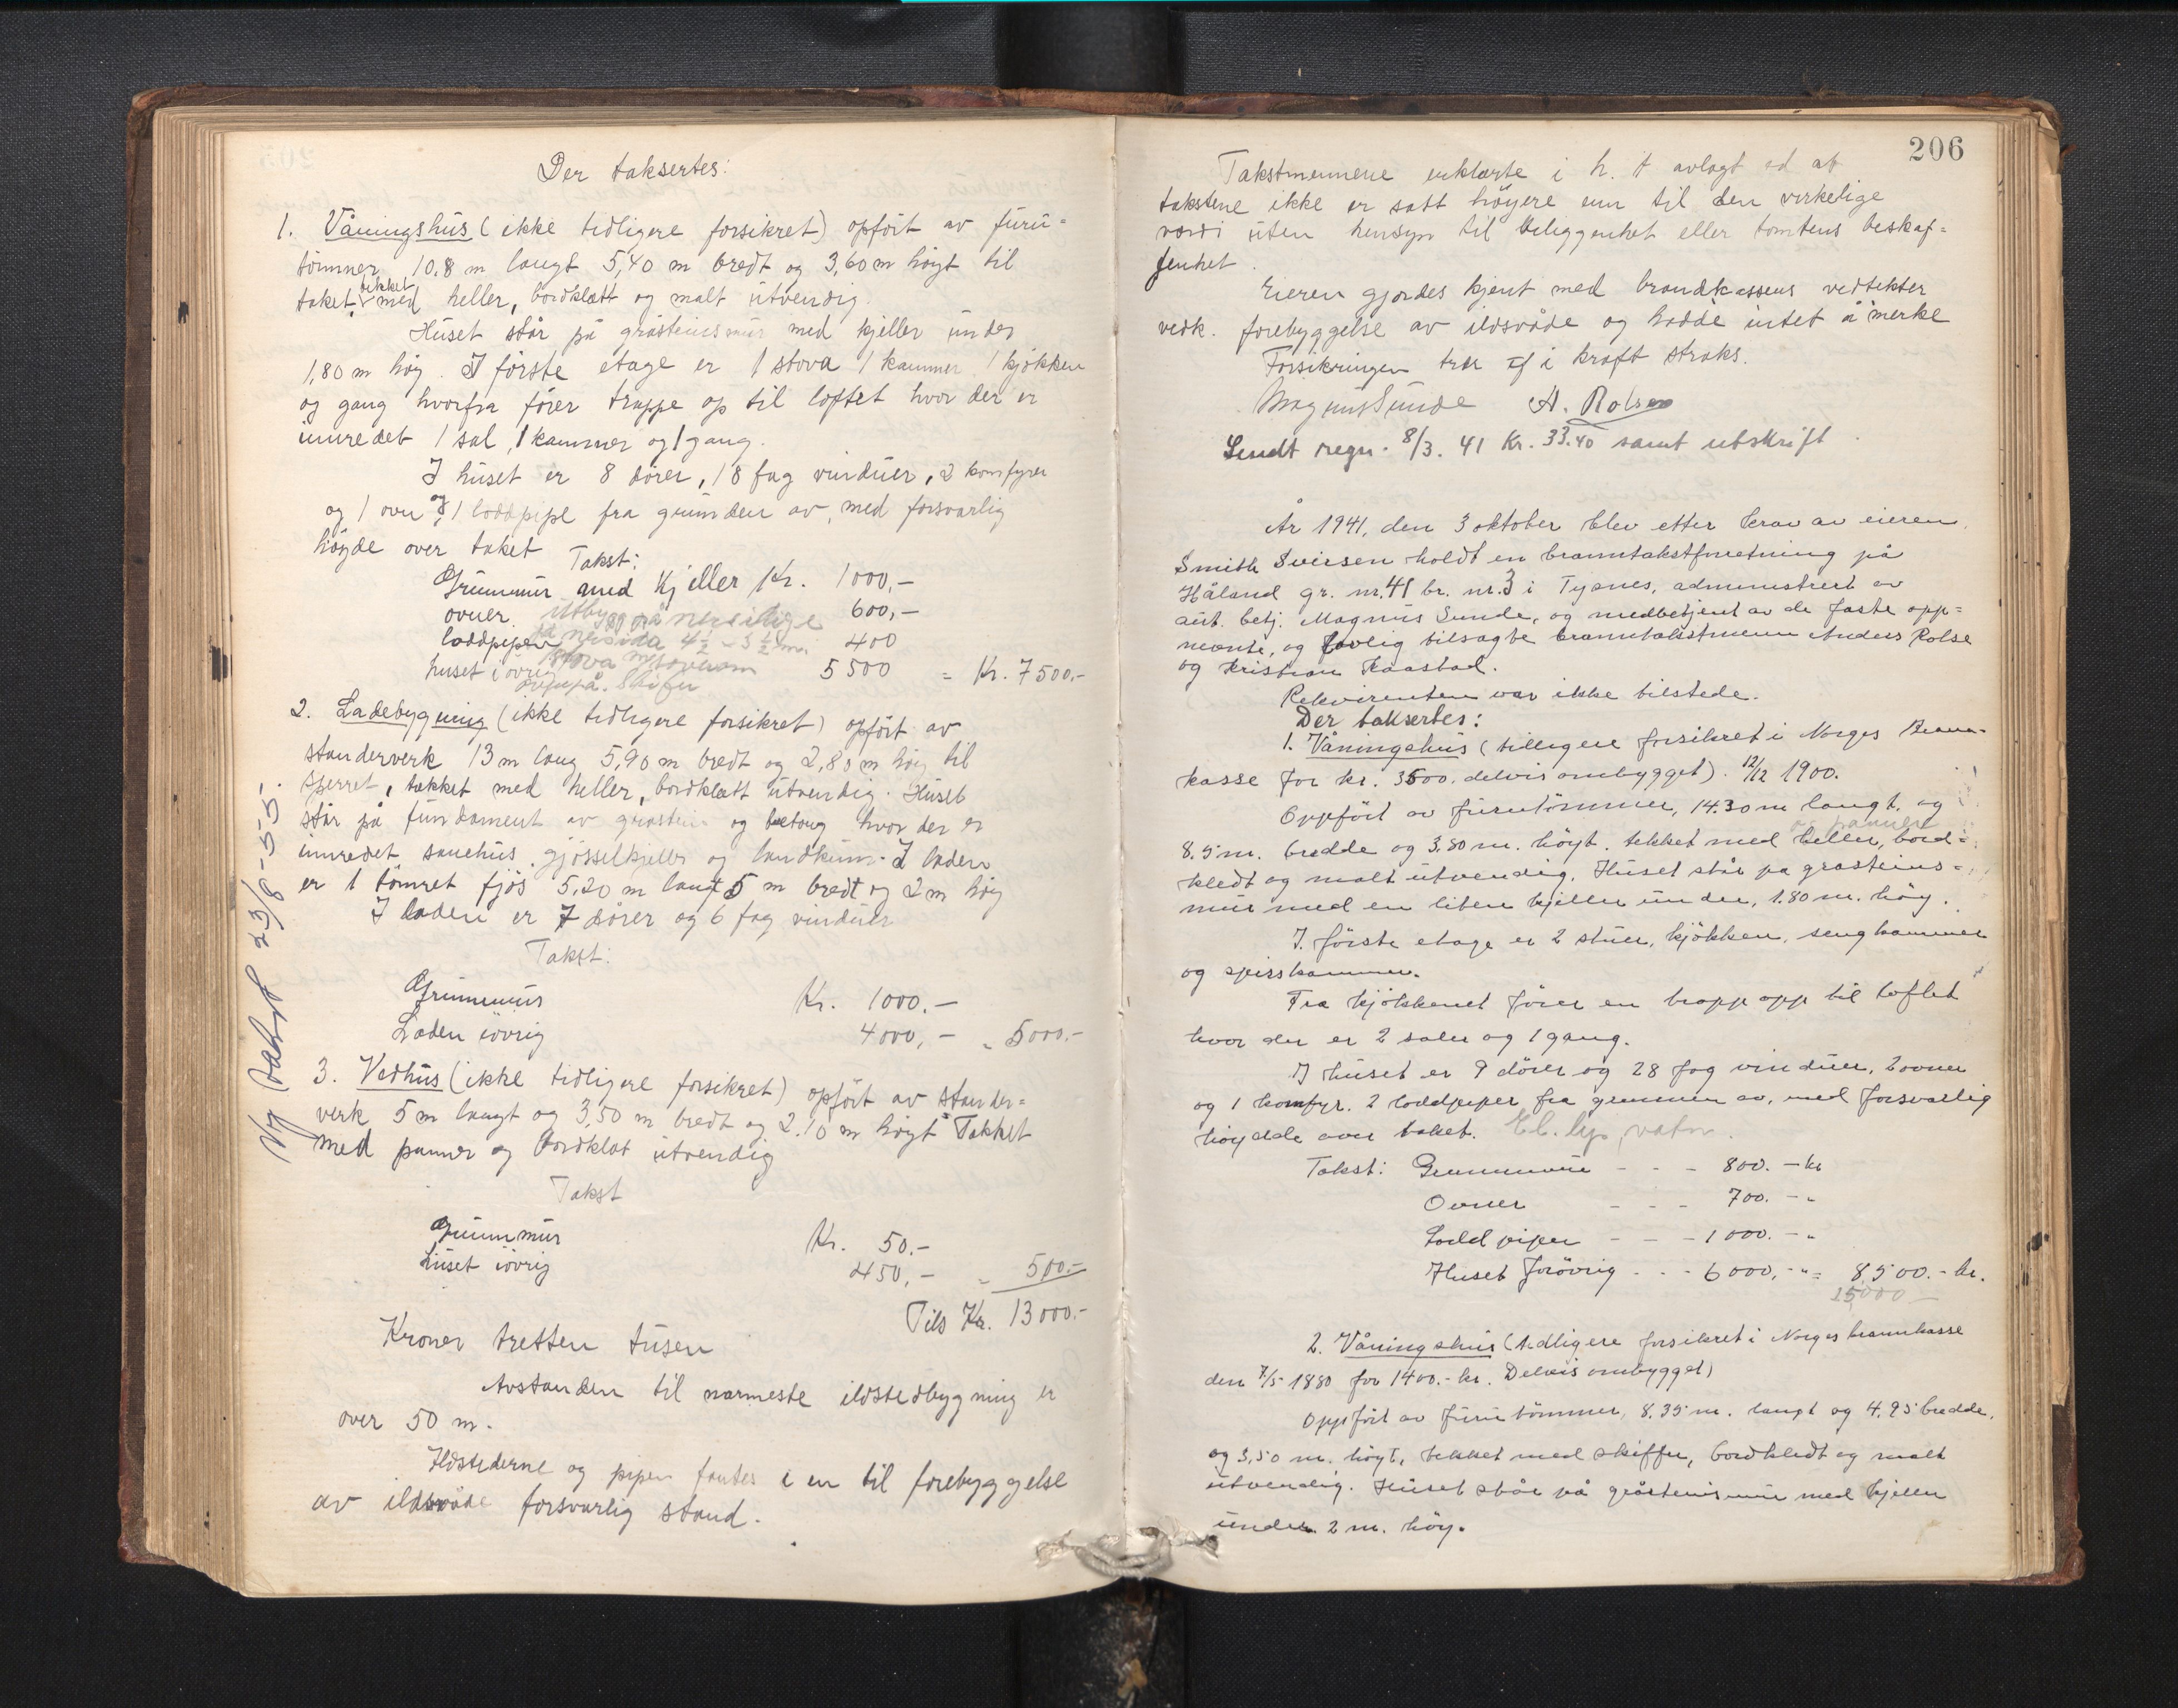 Der taksertes:
1. Våningshus (ikke tidligere forsikret) opført av furu=
tømmer 10.8 m langt 5,40 m bredt og 3,60 m høgt til
taket tekket med heller, bordklætt og malt utvendig.
Huset står på gråsteinsmur med kjeller under
1,80 m høg. I første etage er 1 stova 1 kammer 1 kjøkken
og gang hvorfra fører trappe op til loftet hvor der er
innredet 1 sal, 1 kammer og 1 gang.
I huset er 8 dører, 18 fag vinduer, 2 komfyrer
og 1 ovn og 1 loddpipe fra grunnden av, med forsvarlig
høgde over taket
Takst:
Grunnmur med Kjeller Kr. 1000,-
ovner 600,-
loddpipen 400
huset i øvrig 5500 = Kr. 7500.-
utbygg på
4½ - 3½ m.
Skifer
2. Ladebygning (ikke tidligere forsikret) opført av
standerverk 13 m lang 5,90 m bredt og 2,80 m høg til
sperret, takket med heller, bordklætt utvendig. Huset
står på fundament av gråstein og betong hvor der er
innredet sauehus, gjødselkjeller og landkum. I laden
er 1 tømret fjøs 5,20 m langt 5 m bredt og 2 m høg
I laden er 7 dører og 6 fag vinduer
Takst:
Grunnmur Kr. 1000.-
Laden iøvrig 4000,- = 5000.-
3. Vedhus (ikke tidligere forsikret) opført av stander=
verk 5 m langt og 3,50 m bredt og 2.10 m høgt Takket
med panner og bordklæt utvendig
Takst
Grunnmur Kr. 50.-
huset iøvrig 450,- = 500.-
Tils Kr. 13000.-
Kroner tretten tusen
Avstanden til nærmeste ildstedbygning er
over 50 m.
Ildstederne og pipen fantes i en til forebyggelse
av ildsvåde forsvarlig stand.
Ny takst 23/8-55.
206
Takstmennene erklærte i h. t avlagt ed at
takstene ikke er satt høyere enn til den virkelige
værdi uten hensyn til beliggenhet eller tomtens beskaf=
fenhet.
Eieren gjordes kjent med brandkassens vedtekter
vedk. forebyggelse av ildsvåde og hadde intet å merke
Forsikringen trer i kraft straks.
Magnus Sunde A. Rolse
Sendt regn. 8/3. 41 Kr. 33.40 samt utskrift.
År 1941, den 3 oktober blev etter krav av eieren
Smith Sverssen holdt en branntakstforretning på
Håland gr. nr. 41 br. nr. 3 i Tysnes, administrert av
aut. betj. Magnus Sunde, og medbetjent av de faste opp=
nevnte, og lovlig tilsagte branntakstmenn Anders Rolse
og Kristian Kaastad.
Rekvirenten var ikke tilstede.
Der taksertes:
1. Våningshus (tidligere forsikret i Norges Brann-
kasse for kr. 3500. delvis ombygget). 12/12 1900.
Oppført av furutømmer, 14.30 m langt, og
og panner
8.5 m. bredde og 3.80 m. høyt. tekket med heller, bord=
kledt og malt utvendig. Huset står på gråsteins=
mur med en liten kjeller under, 1.80 m. høy.
I. første etage er 2 stuer, kjøkken, sengkammer
og spisskammer.
Fra kjøkkenet fører en trapp opp til loftet
hvor der er 2 saler og 1 gang.
I huset er 9 dører og 28 fag vinduer, 2 ovner
og 1 komfyr. 2 loddpiper fra grunnen av, med forsvarlig
høydde over taket. El. lys, vatn.
Takst: Grunnmuren - - - 800.- kr
Ovner - - - 700.- "
Loddpiper - - - 1000.- "
Huset forøvrig - - - 6000,- " = 8500.- kr.
25000 -
2. Våningshus (tidligere forsikret i Norges brannkasse
den 7/5 1880 for 1400.- kr. Delvis ombygget)
Oppført av furutømmer, 8.35 m. langt og 4.95 bredde,
og 3,50 m. høyt, tekket med skiffer, bordkledt og malt
utvendig. Huset står på gråsteinsmur med kjeller
under 2 m. høy.